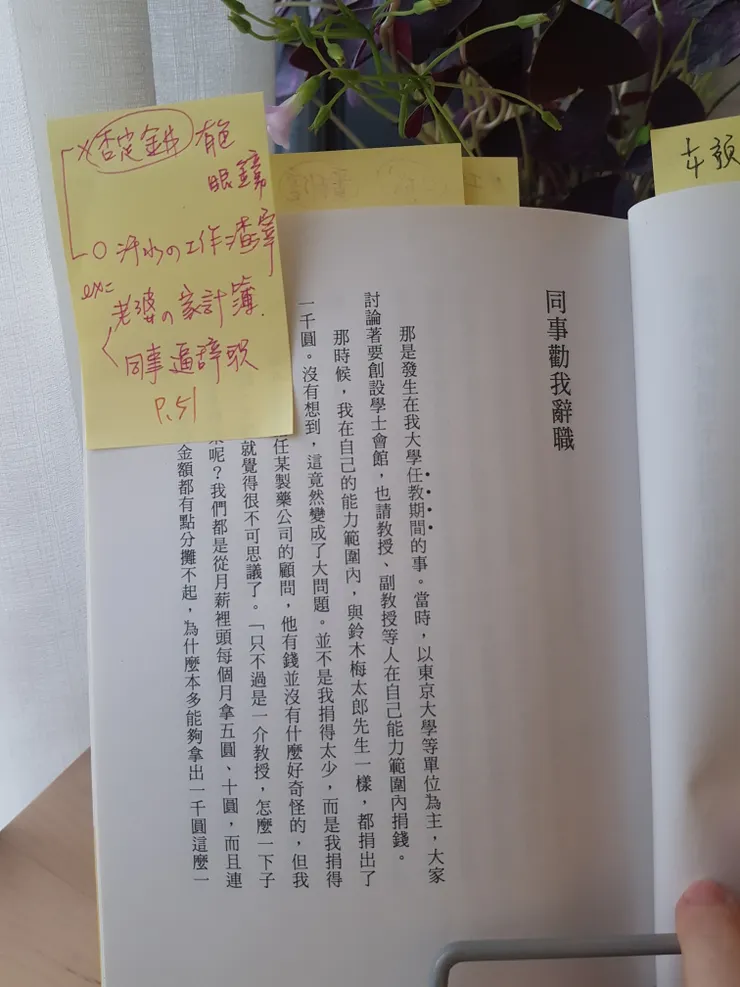 X 否定金錢 有色
眼鏡
O 汗水の工作渣滓
ex=
老婆の家計簿.
同事逼辞职
P.51
同事勸我辭職
那是發生在我大學任教期間的事。當時,以東京大學等單位為主,大家
討論著要創設學士會館,也請教授、副教授等人在自己能力範圍內捐錢。
那時候,我在自己的能力範圍內,與鈴木梅太郎先生一樣,都捐出了
一千圓。沒有想到,這竟然變成了大問題。並不是我捐得太少,而是我捐得
任某製藥公司的顧問,他有錢並沒有什麼好奇怪的,但我
就覺得很不可思議了。「只不過是一介教授,怎麼一下子
呢?我們都是從月薪裡頭每個月拿五圓、十圓,而且連
金額都有點分攤不起,為什麼本多能夠拿出一千圓這麼一